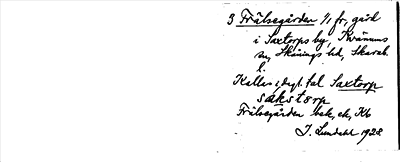 3 Frälsegården 1/1 fr, gård
i Saxtorps by, Kvänums
sn, Skånings hd, Skarab.
l.
Kallas i dagl. tal Saxtorp
sakstorp
Frälsegården bek, ek, Kb
J. Lundahl 1928